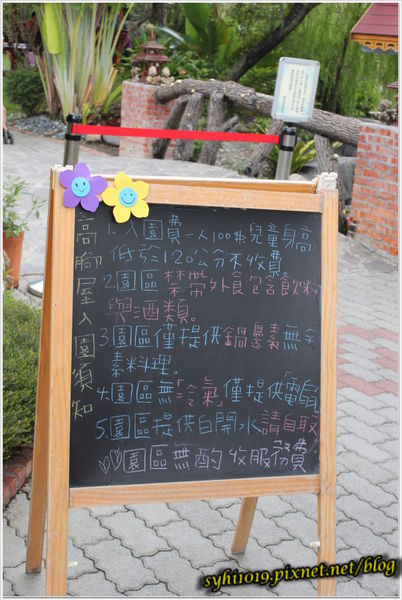 高腳屋入園須知
1.入園費一人100.兒童身高
低於120公分不收費。
2.園區禁帶外食包含飲料
與酒類。
3.園區僅提供鍋、無全
素料理。
4.園區無「冷氣」僅提供「電扇」。
5.園區提供白開水請自取
園區無酌收服務費
syhi1019.pixnet.net/blog